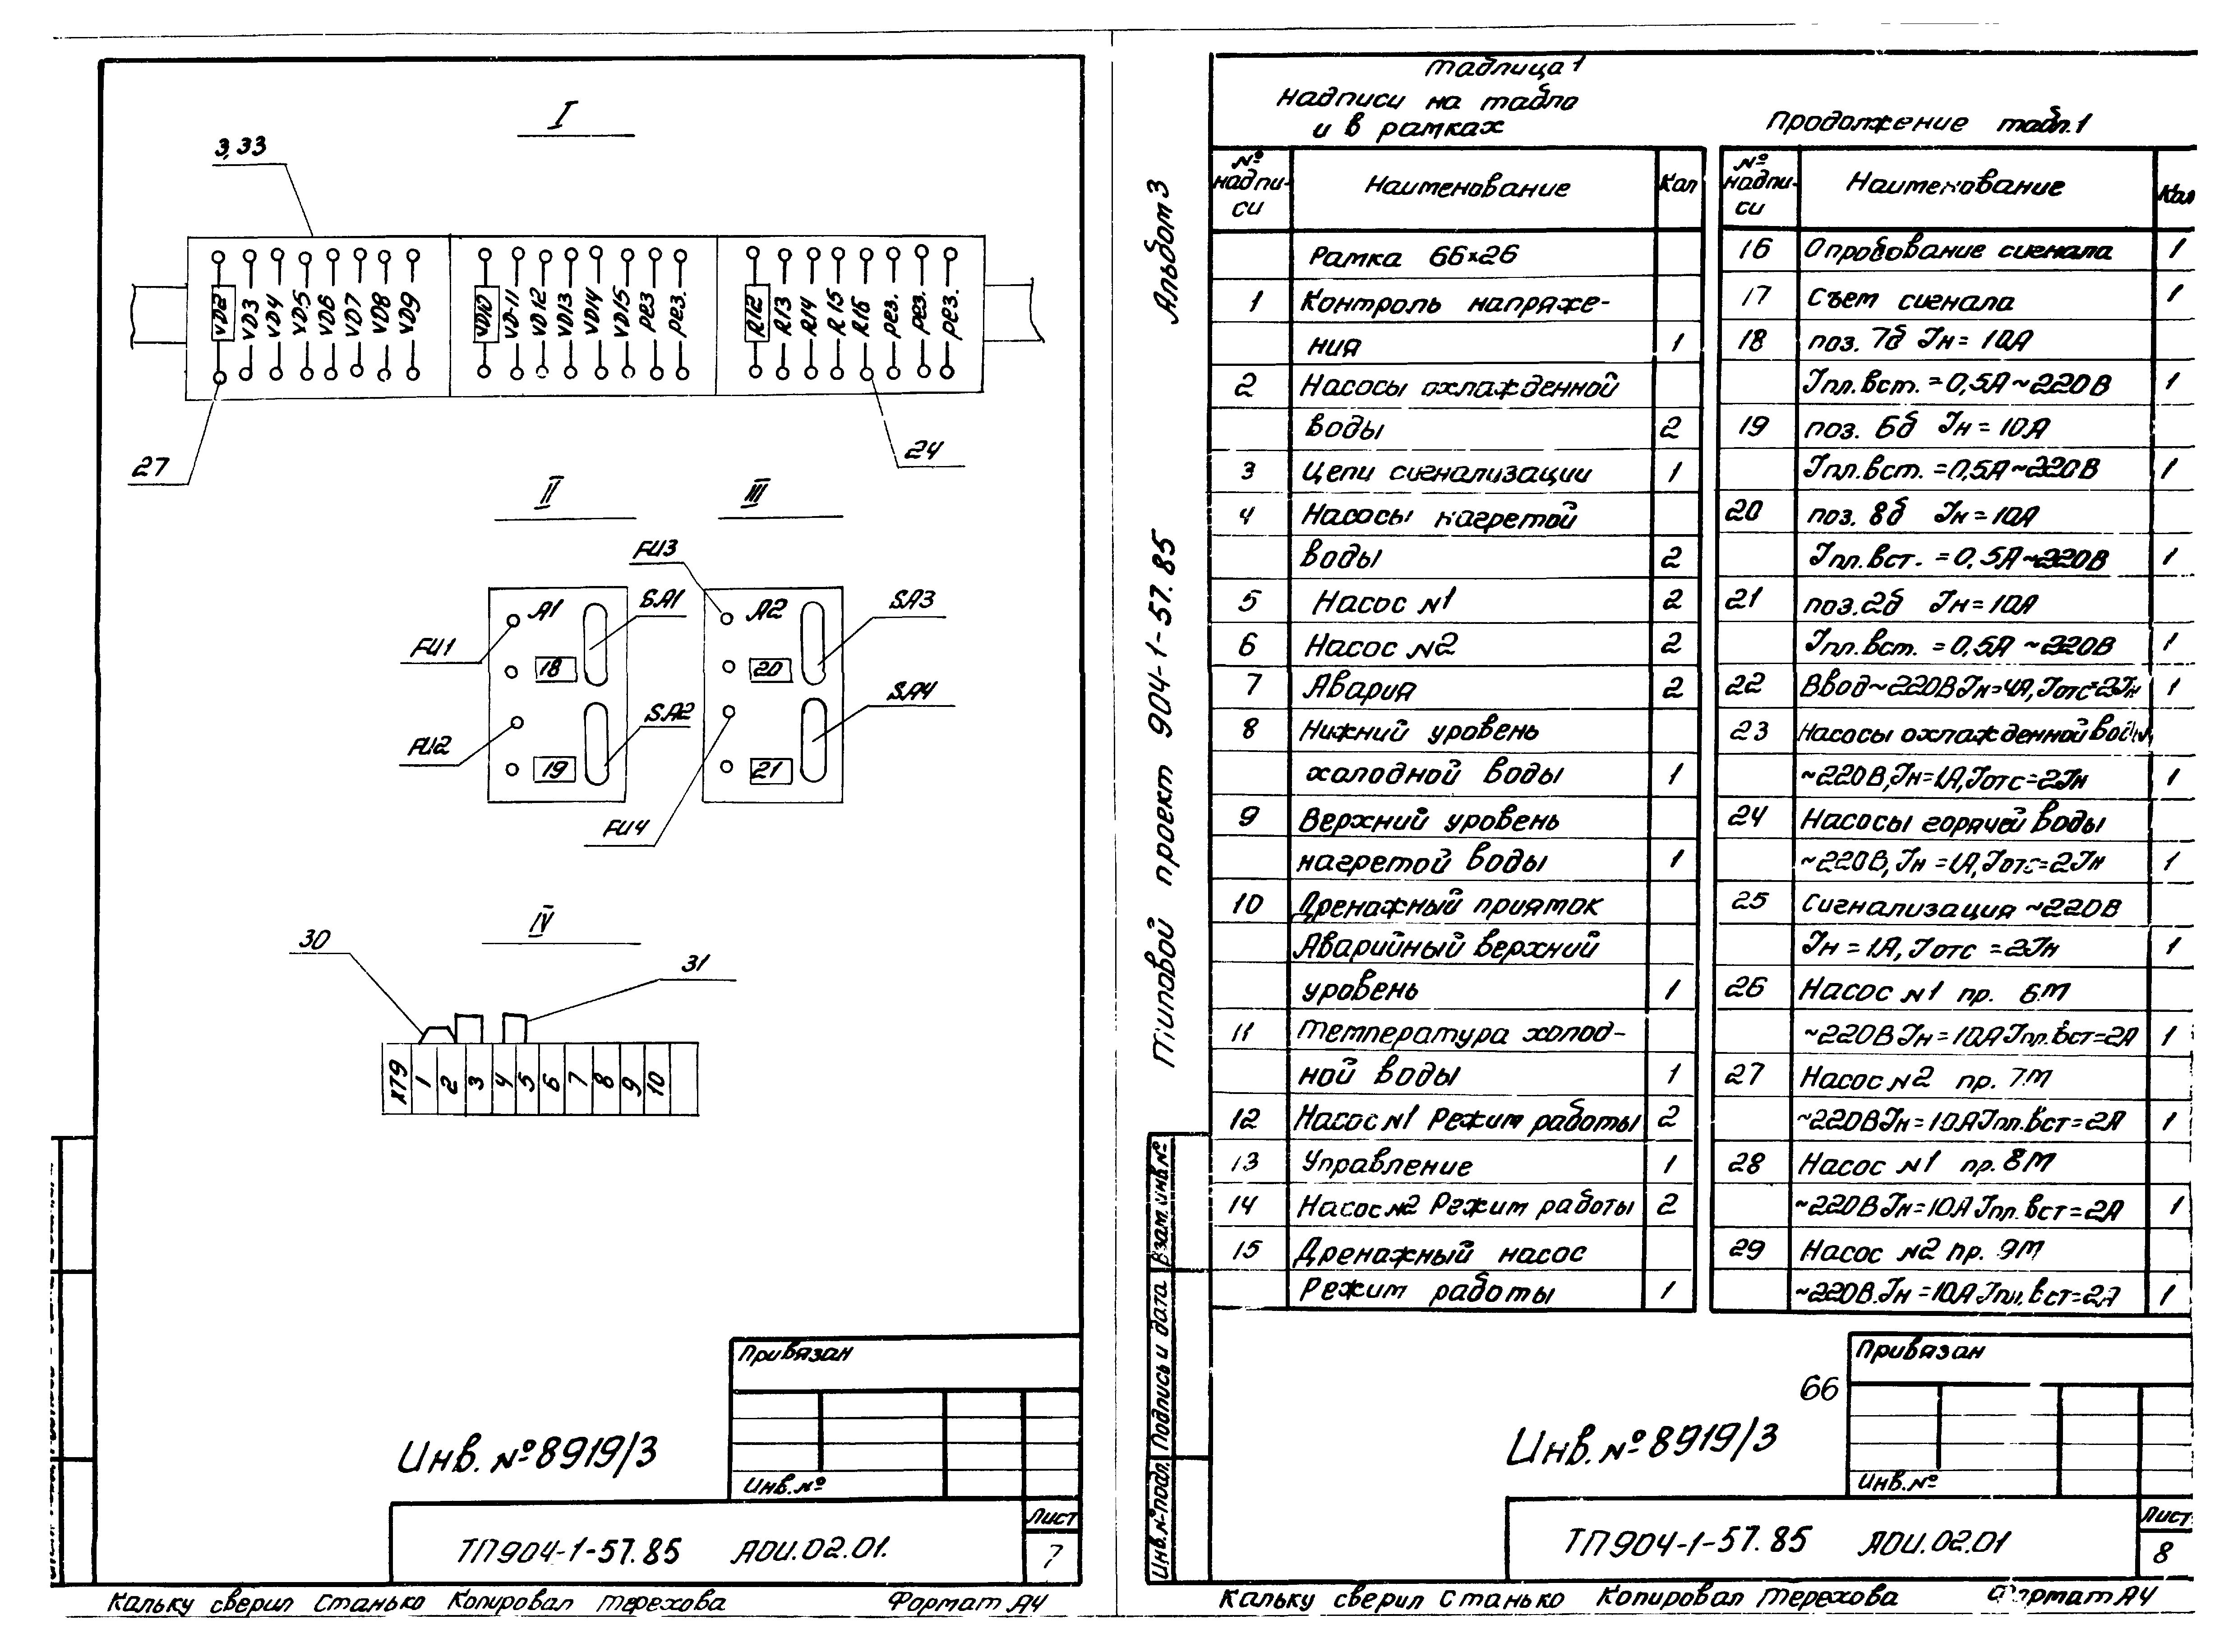 I
3,33
VD2 VD3 VD4 VD5 VD6 VD7 VD8 VD9
VD10 VD-11 VD12 VD13 VD14 VD15 рез рез.
R12 R13 R14 R15 R16 рез. рез. рез.
27
24
II
III
FU3
A1
SA1
A2
SA3
FU1
18
20
SA2
SA4
FU2
19
21
FU4
IV
30
31
XT9 1 2 3 4 5 6 7 8 9 10
Привязан
Инв.№
Инв. №8919/3
ТП904-1-57.85 АОИ.02.01.
Лист
7
Кальку сверил Станько Копировал Терехова Формат А4
Альбом 3
Типовой проект 904-1-57.85
Взам.инв.№
Подпись и дата
Инв.№подл.
Таблица 1
Надписи на табло
и в рамках
№ надпи-си Наименование Кол
Рамка 66×26
1 Контроль напряже-
ния 1
2 Насосы охлажденной
воды 2
3 Цепи сигнализации 1
4 Насосы нагретой
воды 2
5 Насос №1 2
6 Насос №2 2
7 Авария 2
8 Нижний уровень
холодной воды 1
9 Верхний уровень
нагретой воды 1
10 Дренажный приямок
Аварийный верхний
уровень 1
11 Температура холод-
ной воды 1
12 Насос №1 Режим работы 2
13 Управление 1
14 Насос №2 Режим работы 2
15 Дренажный насос
Режим работы 1
Продолжение табл.1
№ надпи-си Наименование Кол
16 Опробование сигнала 1
17 Съем сигнала 1
18 поз. 7б Iн= 10А
Iпл.вст. =0,5А~220В 1
19 поз. 6б Iн=10А
Iпл.вст. =0,5А~220В 1
20 поз. 8б Iн=10А
Iпл.вст. =0,5А~220В 1
21 поз.2б Iн=10А
Iпл.вст. =0,5А ~220В 1
22 Ввод~220В Iн=4А, Iотс=2Iн 1
23 Насосы охлажденной воды
~220В, Iн=1А, Iотс=2Iн 1
24 Насосы горячей воды
~220В, Iн =1А, Iотс=2Iн 1
25 Сигнализация ~220В
Iн =1А, Iотс =2Iн 1
26 Насос №1 пр. 6М
~220В Iн=10А Iпл.вст=2А 1
27 Насос №2 пр. 7М
~220В Iн=10А Iпл.вст=2А 1
28 Насос №1 пр. 8М
~220В Iн=10А Iпл.вст=2А 1
29 Насос №2 пр. 9М
~220В. Iн =10А Iпл.вст=2А 1
Привязан
66
Инв.№
Инв.№8919/3
ТП904-1-57.85 АОИ.02.01
Лист
8
Кальку сверил Станько Копировал Терехова Формат А4